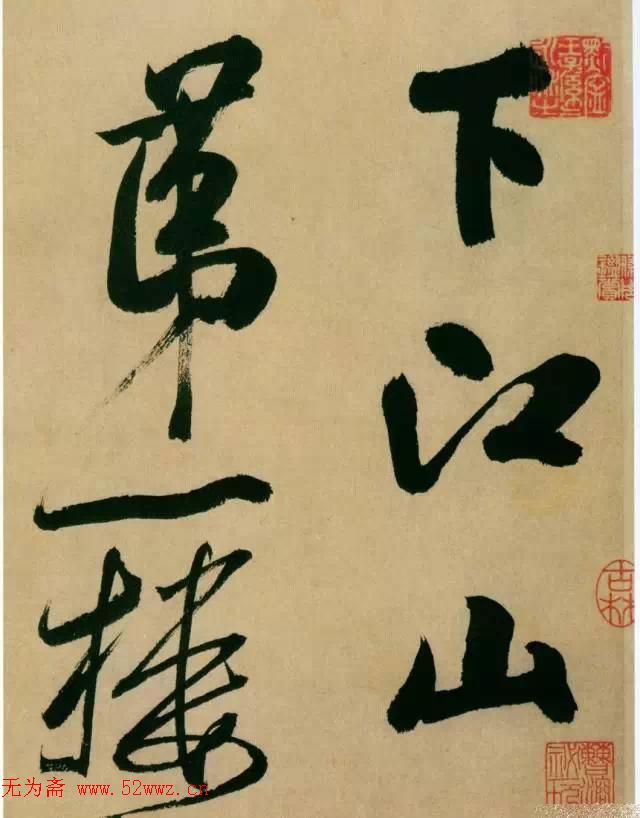 下江山
第一楼
吉林
无为斋 www.52wwz.cn